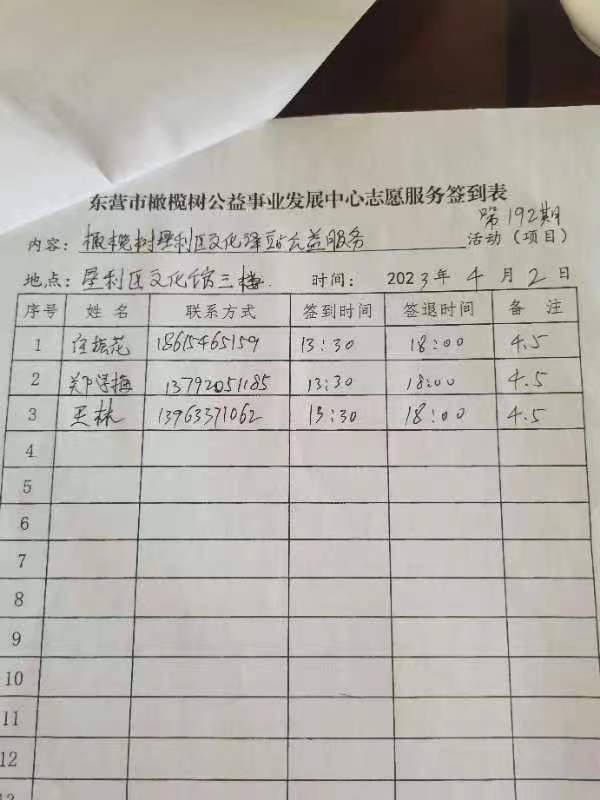 东营市橄榄树公益事业发展中心志愿服务签到表
第192期
内容：橄榄树垦利区文化驿站公益服务 活动（项目）
地点：垦利区文化馆三楼 时间：2023年4月2日
序号 姓名 联系方式 签到时间 签退时间 备注
1 振花 18615465159 13:30 18:00 4.5
2 郑梅 13792051185 13:30 18:00 4.5
3 王林 13963371062 13:30 18:00 4.5
4
5
6
7
8
9
10
11
12
13